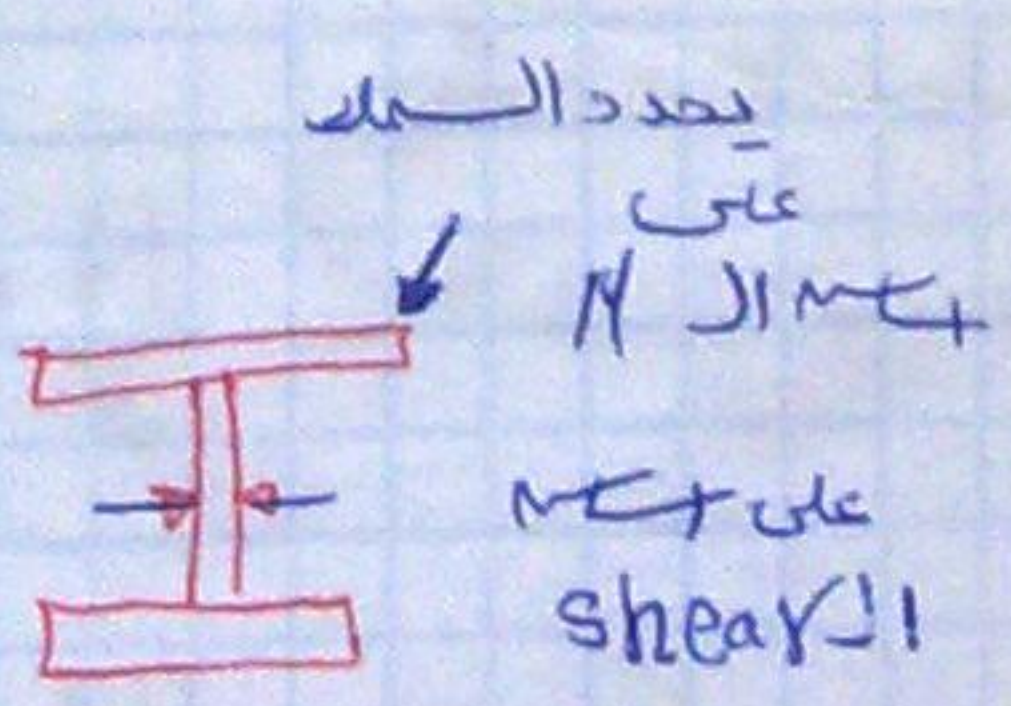 يحدد السمك
على
ال N
على
ال shear